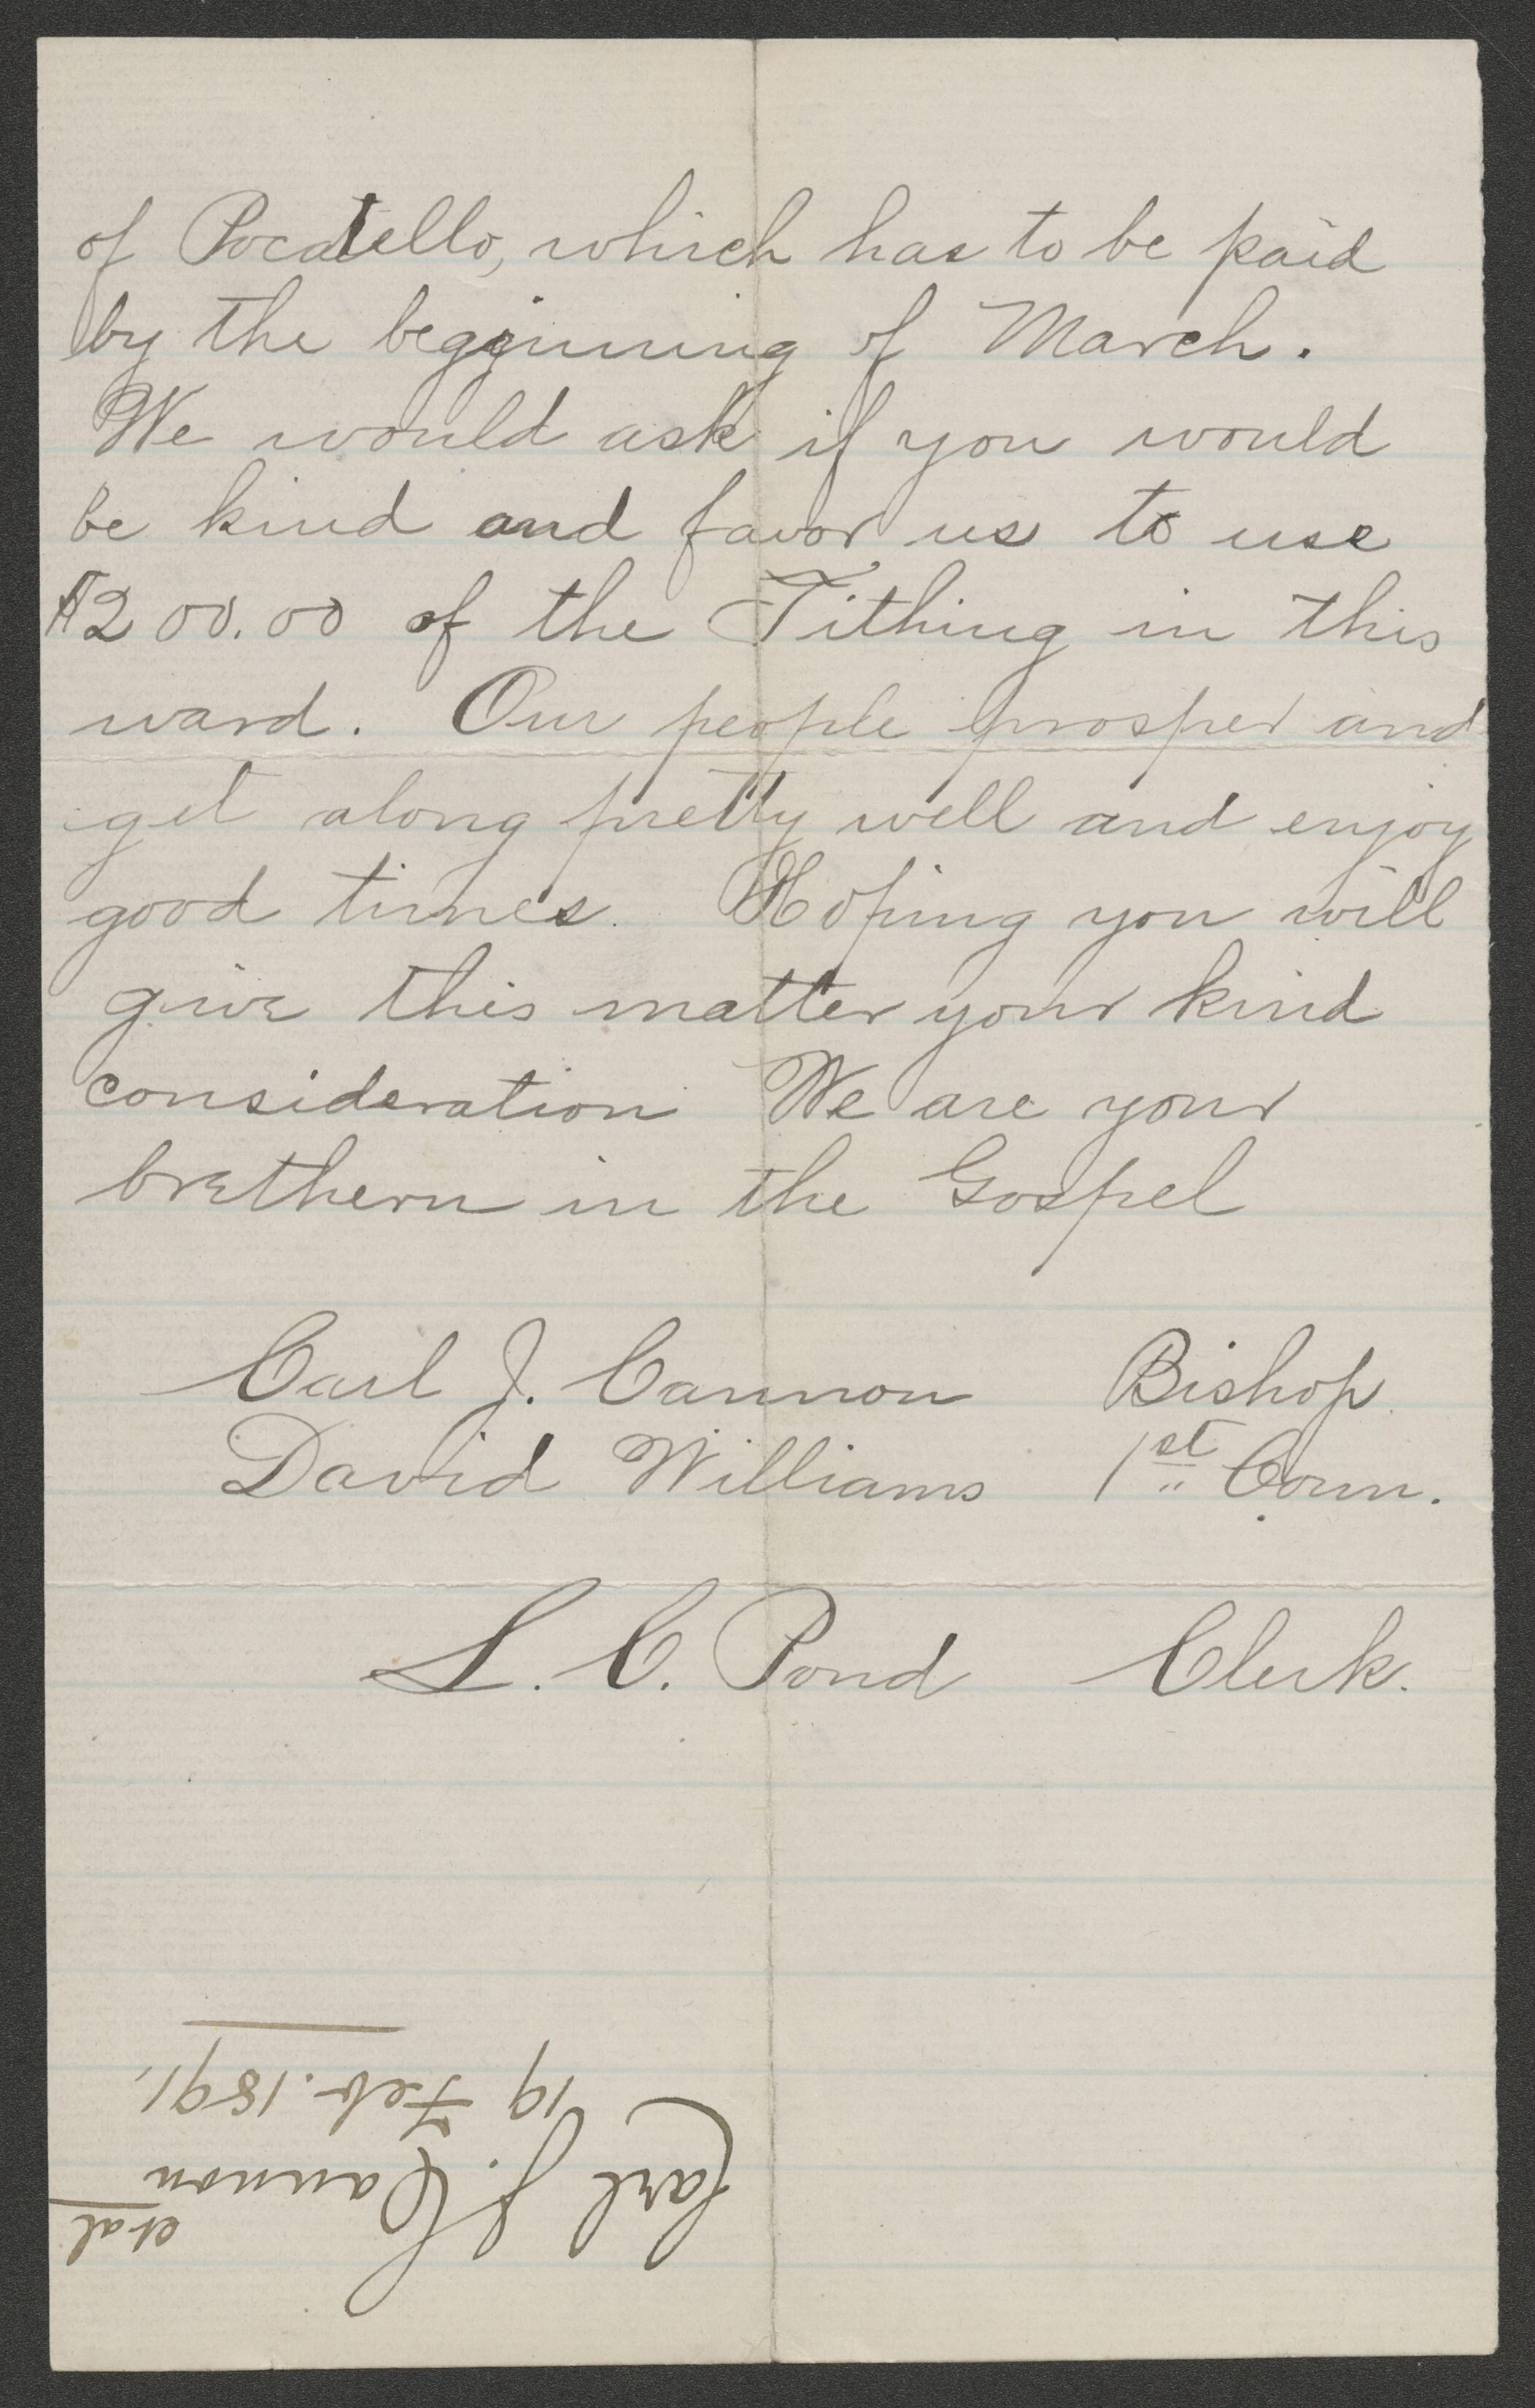 of Pocatello, which has to be paid
by the beggining of March.
We would ask if you would
be kind and favor us to use
$200.00 of the Tithing in this
ward. Our people prosper and
get along pretty well and enjoy
good times. Hoping you will
give this matter your kind
consideration We are your
brethern in the Gospel
Carl J. Cannon Bishop.
David Williams 1st Coun.
L. C. Pond Clerk.
et al
Carl J. Cannon
19 Feb. 1891.